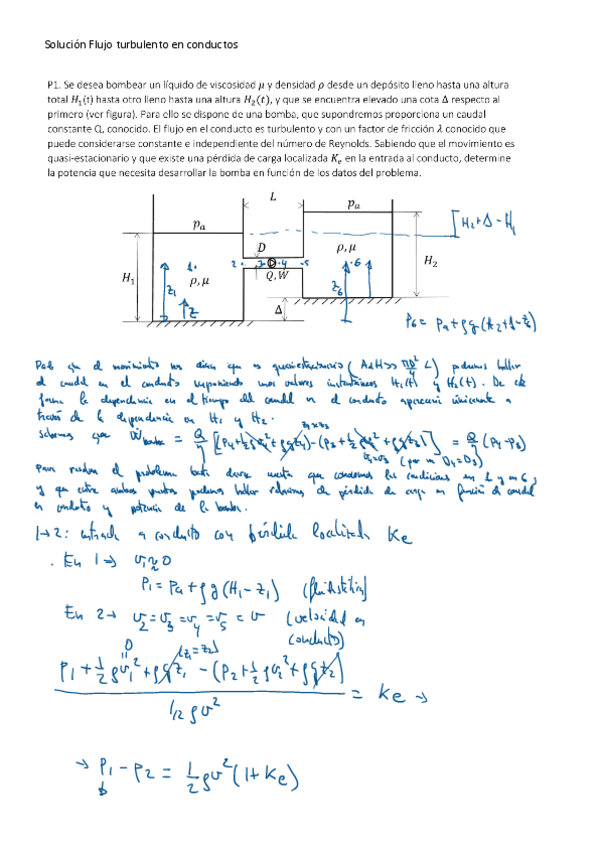 Solución Flujo turbulento en conductos
P1. Se desea bombear un líquido de viscosidad μ y densidad ρ desde un depósito lleno hasta una altura
total H₁(t) hasta otro lleno hasta una altura H₂(t), y que se encuentra elevado una cota Δ respecto al
primero (ver figura). Para ello se dispone de una bomba, que supondremos proporciona un caudal
constante Q, conocido. El flujo en el conducto es turbulento y con un factor de fricción λ conocido que
puede considerarse constante e independiente del número de Reynolds. Sabiendo que el movimiento es
quasi-estacionario y que existe una pérdida de carga localizada Kₑ en la entrada al conducto, determine
la potencia que necesita desarrollar la bomba en función de los datos del problema.
L
pₐ
pₐ
H₂+Δ-H₁
D
ρ, μ
1.
2 . 3 . 4 . 5
.6
H₁
ρ, μ
Q, W
H₂
z₁
z
z₆
Δ
P₆ = Pa+ρg(H₂+Δ-z₆)
el movimiento nos dicen que es quasiestacionario ( πD²/4 L) podemos hallar
el caudal en el conducto suponiendo unos valores instantáneos H₁(t) y H₂(t). De
forma la dependencia en el tiempo del caudal en el conducto aparecerá únicamente a
través de la dependencia en H₁ y H₂.
z₄=z₃
Sabemos que Ẇbomba = Q/η [(P₄+½ρv₄²+ρgz₄)-(P₃+½ρv₃²+ρgz₃)] = Q/η (P₄-P₃)
v₄=v₃ (por ser D₄=D₃)
Para resolver el problema basta darse cuenta que conocemos las condiciones en 1 y en 6,
y que entre ambos puntos podemos hallar relaciones de pérdida de carga en función del caudal
en conducto y potencia de la bomba.
1→2: entrada a conducto con pérdida localizada Ke
. En 1 → v₁≈0
P₁ = Pa+ρg(H₁-z₁) (fluidostática)
En 2→ v₂=v₃=v₄=v₅=v (velocidad en
conducto)
0
(z₁=z₂)
P₁+½ρv₁²+ρgz₁ -(P₂+½ρv₂²+ρgz₂)
= Ke →
1/2 ρv²
→ P₁-P₂ = ½ρv²(1+Ke)